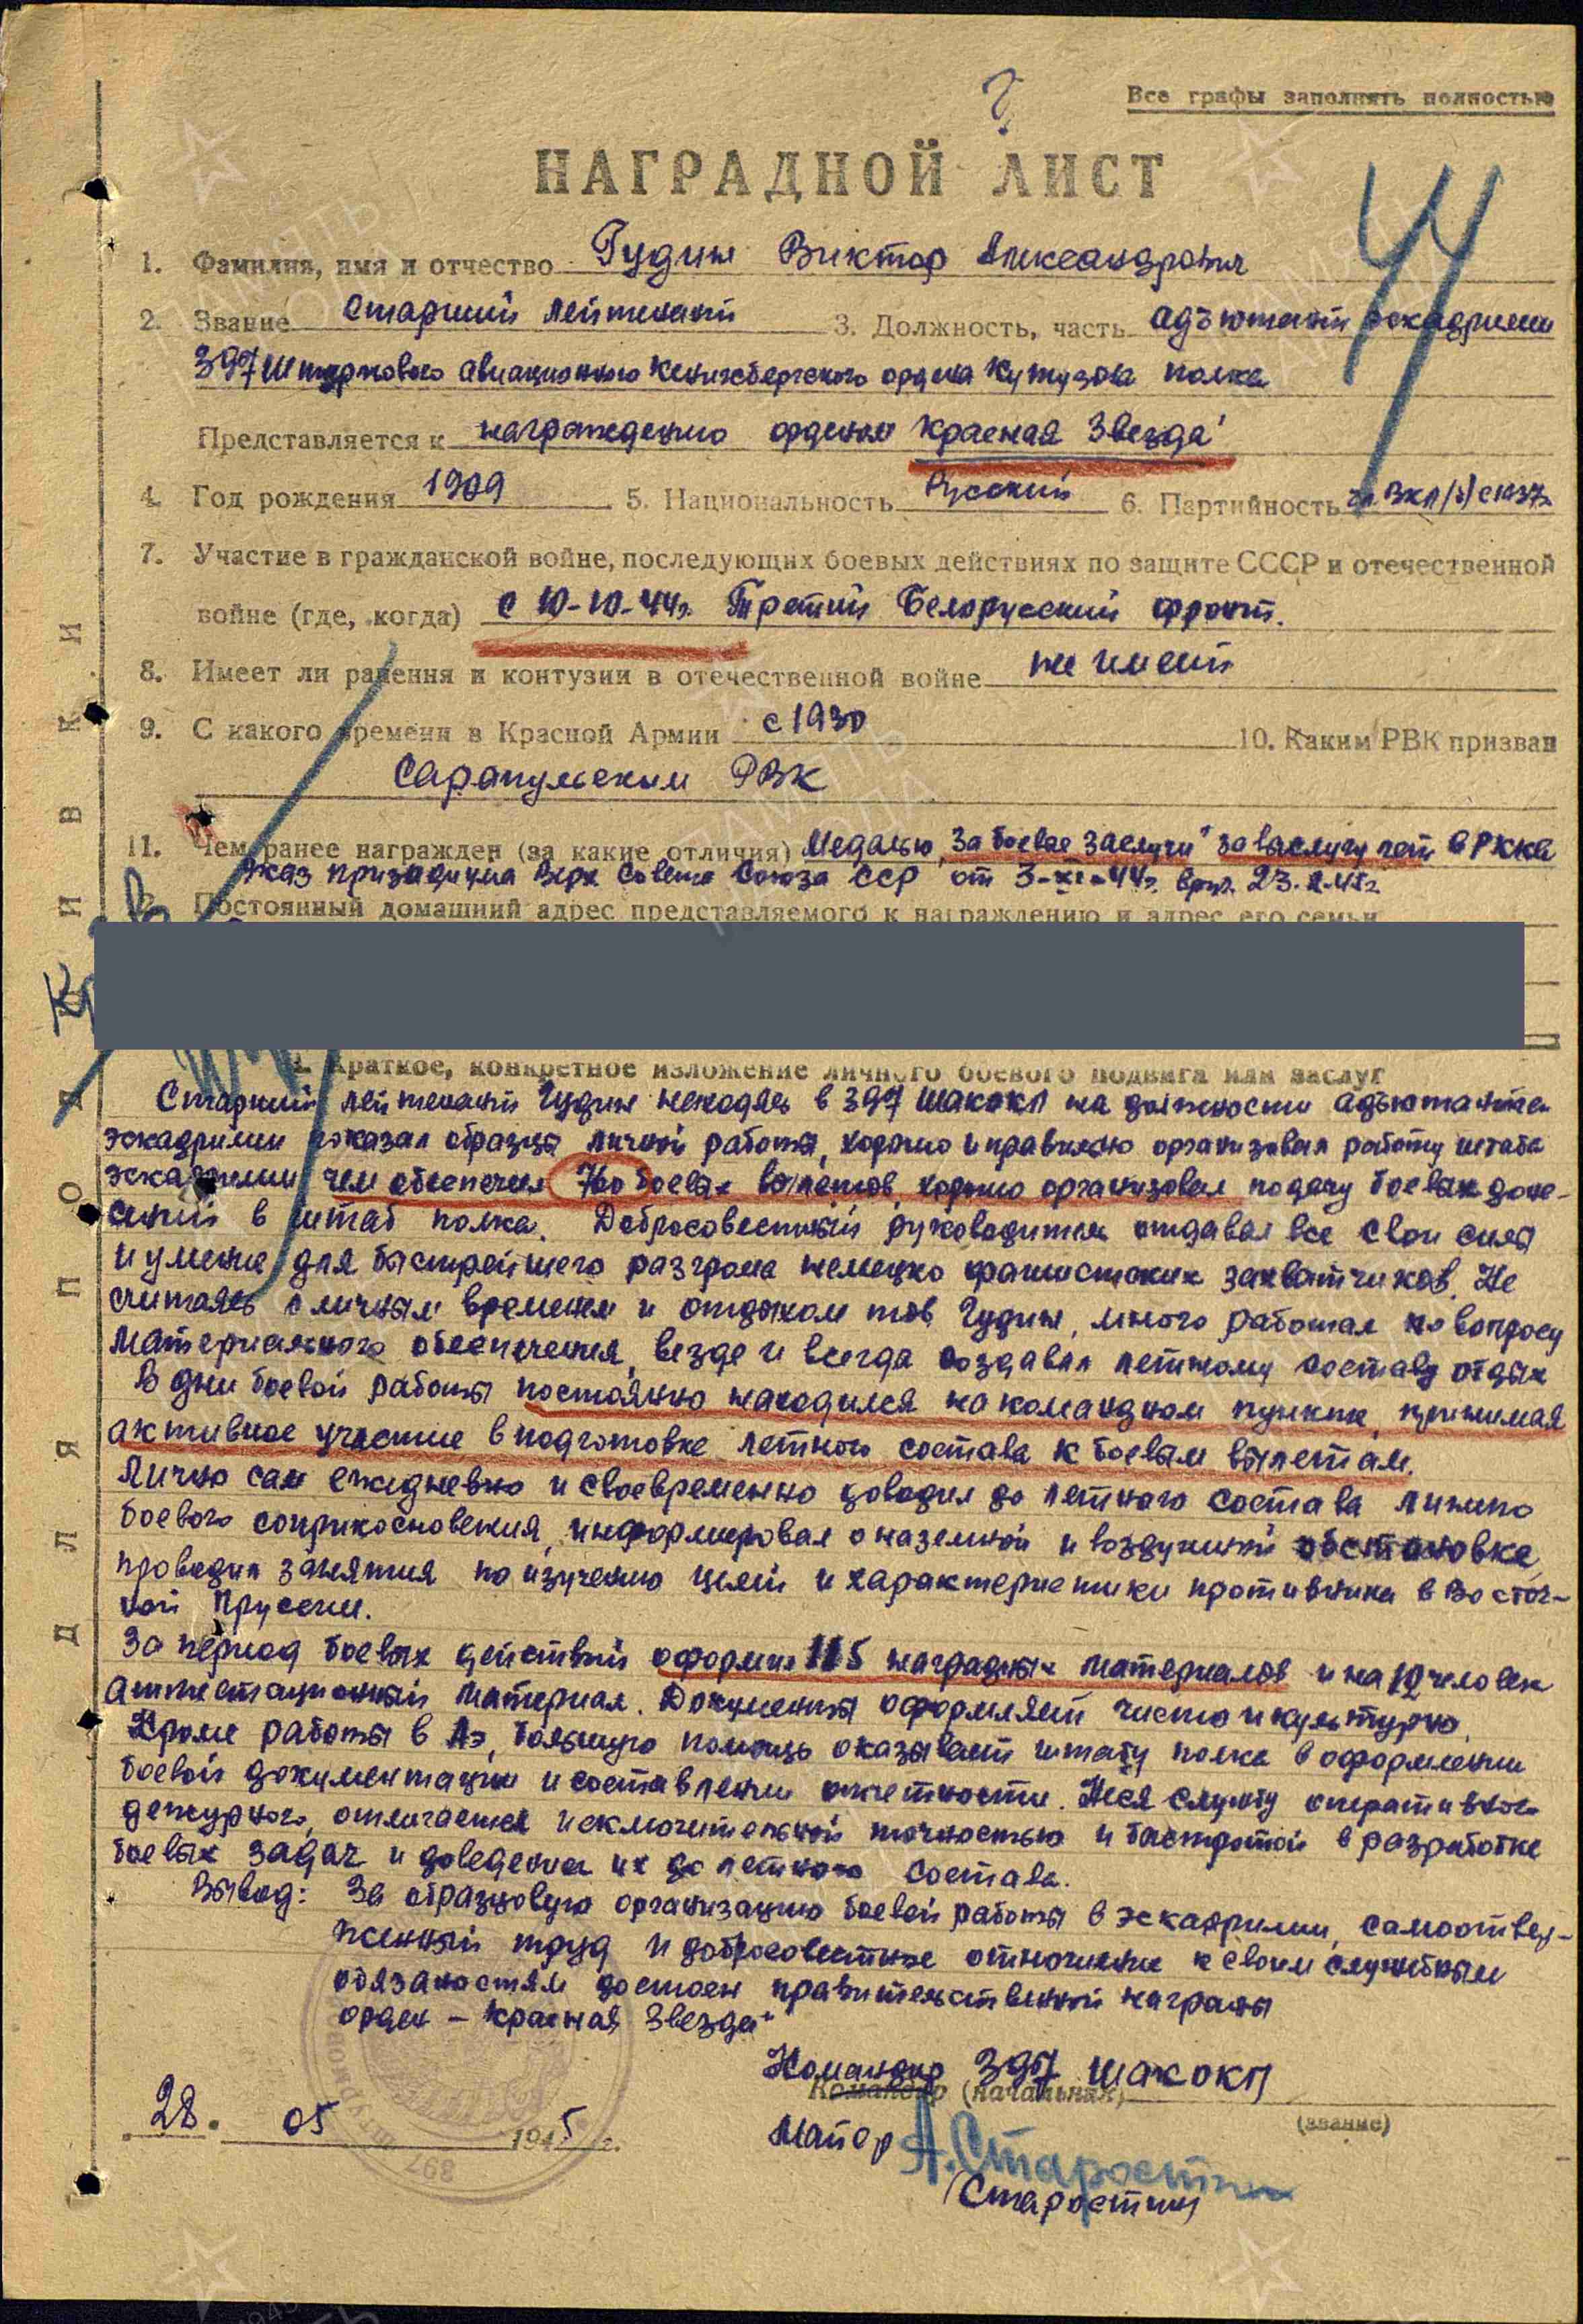 Все графы заполнять полностью
НАГРАДНОЙ ЛИСТ
44
1. Фамилия, имя и отчество Гудин Виктор Александрович
2. Звание Старший лейтенант 3. Должность, часть адъютант эскадрилии
397 Штурмового авиационного Кенигсбергского ордена Кутузова полка
Представляется к награждению орденом "Красная Звезда"
4. Год рождения 1909 5. Национальность Русский 6. Партийность чл. ВКП/б/ с 1937г.
7. Участие в гражданской войне, последующих боевых действиях по защите СССР и отечественной
войне (где, когда) с 10-10-44г. Третий Белорусский фронт.
8. Имеет ли ранения и контузии в отечественной войне не имеет
9. С какого времени в Красной Армии с 1930 10. Каким РВК призван
Сарапульским РВК
11. Чем ранее награжден (за какие отличия) Медалью "За боевые заслуги" за выслугу лет в РККА
Указ призидиума Верх Совета Союза ССР от 3-XI-44г. 23.2.45г.
Постоянный домашний адрес представляемого к награждению и адрес его семьи
ДЛЯ ПОДШИВКИ
Краткое, конкретное изложение личного боевого подвига или заслуг
Старший лейтенант Гудин находясь в 397 ШАКОКП на должности адъютанта
эскадрилии показал образцы личной работы, хорошо и правильно организовал работу штаба
эскадрилии чем обеспечил 760 боевых вылетов, хорошо организовал подачу боевых доне-
сений в штаб полка. Добросовестный руководитель отдавал все свои силы
и умение для быстрейшего разгрома немецко фашистских захватчиков. Не
считаясь с личным временем и отдыхом тов. Гудин, много работал по вопросу
материального обеспечения, везде и всегда создавал летному составу отдых
В дни боевой работы постоянно находился на командном пункте, принимая
активное участие в подготовке летного состава к боевым вылетам.
Лично сам ежедневно и своевременно доводил до летного состава линию
боевого соприкосновения, информировал о наземной и воздушной обстановке,
проводил занятия по изучению целей и характеристики противника в Восточ-
ной Пруссии.
За период боевых действий оформил 115 наградных материалов и на 12 человек
аттестационный материал. Документы оформляет чисто и культурно.
Кроме работы в АЭ, большую помощь оказывает штабу полка в оформлении
боевой документации и составлении отчетности. Неся службу оперативного
дежурного, отличается исключительной точностью и быстротой в разработке
боевых задач и доведения их до летного состава.
Вывод: За образцовую организацию боевой работы в эскадрилии, самоотвер-
женный труд и добросовестное отношение к своим служебным
обязаностям достоен правительственной награды
орден - Красная Звезда"
Командир 397 ШАКОКП
Командир (начальник)
(звание)
28. 05 1945 г.
Майор А. Старостин
(Старостин)
397